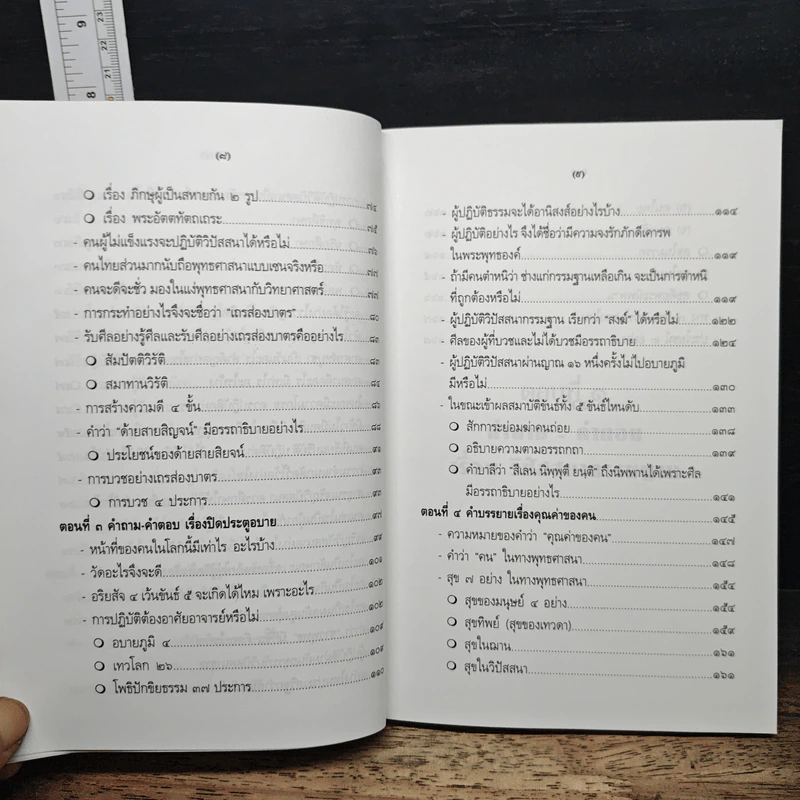 9
8
23
22
21
(๘)
❍ เรื่อง ภิกษุผู้เป็นสหายกัน ๒ รูป ๗๔
❍ เรื่อง พระอัตตทัตถเถระ ๗๕
- คนผู้ไม่แข็งแรงจะปฏิบัติวิปัสสนาได้หรือไม่ ๗๖
- คนไทยส่วนมากนับถือพุทธศาสนาแบบเซนจริงหรือ ๗๗
- คนจะดีจะชั่ว มองในแง่พุทธศาสนากับวิทยาศาสตร์ ๗๗
- การกระทำอย่างไรจึงจะชื่อว่า "เถรส่องบาตร" ๘๐
- รับศีลอย่างรู้ศีลและรับศีลอย่างเถรส่องบาตรคืออย่างไร ๘๓
❍ สัมปัตตวิรัติ ๘๓
❍ สมาทานวิรัติ ๘๔
- การสร้างความดี ๔ ขั้น ๘๖
- คำว่า "ด้ายสายสิญจน์" มีอรรถาธิบายอย่างไร ๘๘
❍ ประโยชน์ของด้ายสายสิญจน์ ๙๑
- การบวชอย่างเถรส่องบาตร ๙๓
❍ การบวช ๔ ประการ ๙๓
ตอนที่ ๓ คำถาม-คำตอบ เรื่องปิดประตูอบาย ๙๗
- หน้าที่ของคนในโลกนี้มีเท่าไร อะไรบ้าง ๙๙
- วัดอะไรจึงจะดี ๑๐๑
- อริยสัจ ๔ เว้นขันธ์ ๕ จะเกิดได้ไหม เพราะอะไร ๑๐๒
- การปฏิบัติต้องอาศัยอาจารย์หรือไม่ ๑๐๒
❍ อบายภูมิ ๔ ๑๐๙
❍ เทวโลก ๒๖ ๑๐๙
❍ โพธิปักขิยธรรม ๓๗ ประการ ๑๑๐
(๙)
- ผู้ปฏิบัติธรรมจะได้อานิสงส์อย่างไรบ้าง ๑๑๔
- ผู้ปฏิบัติอย่างไร จึงได้ชื่อว่ามีความจงรักภักดีเคารพ
ในพระพุทธองค์ ๑๑๙
- ถ้ามีคนตำหนิว่า ช่างแก่กรรมฐานเหลือเกิน จะเป็นการตำหนิ
ที่ถูกต้องหรือไม่ ๑๑๙
- ผู้ปฏิบัติวิปัสสนากรรมฐาน เรียกว่า "สงฆ์" ได้หรือไม่ ๑๒๒
- ศีลของผู้ที่บวชและไม่ได้บวชมีอรรถาธิบาย ๑๒๔
- ผู้ปฏิบัติวิปัสสนาผ่านญาณ ๑๖ หนึ่งครั้งไม่ไปอบายภูมิ
มีหรือไม่ ๑๓๐
- ในขณะเข้าผลสมาบัติขันธ์ทั้ง ๕ ขันธ์ไหนดับ ๑๓๓
❍ สักการะย่อมฆ่าคนถ่อย ๑๓๘
❍ อธิบายความตามอรรถกถา ๑๓๙
❍ คำบาลีว่า "สีเลน นิพฺพุตึ ยนฺติ" ถึงนิพพานได้เพราะศีล
มีอรรถาธิบายอย่างไร ๑๔๑
ตอนที่ ๔ คำบรรยายเรื่องคุณค่าของคน ๑๔๕
- ความหมายของคำว่า "คุณค่าของคน" ๑๔๗
- คำว่า "คน" ในทางพุทธศาสนา ๑๔๘
- สุข ๗ อย่าง ในทางพุทธศาสนา ๑๕๔
❍ สุขของมนุษย์ ๔ อย่าง ๑๕๔
❍ สุขทิพย์ (สุขของเทวดา) ๑๕๙
❍ สุขในฌาน ๑๖๑
❍ สุขในวิปัสสนา ๑๖๑